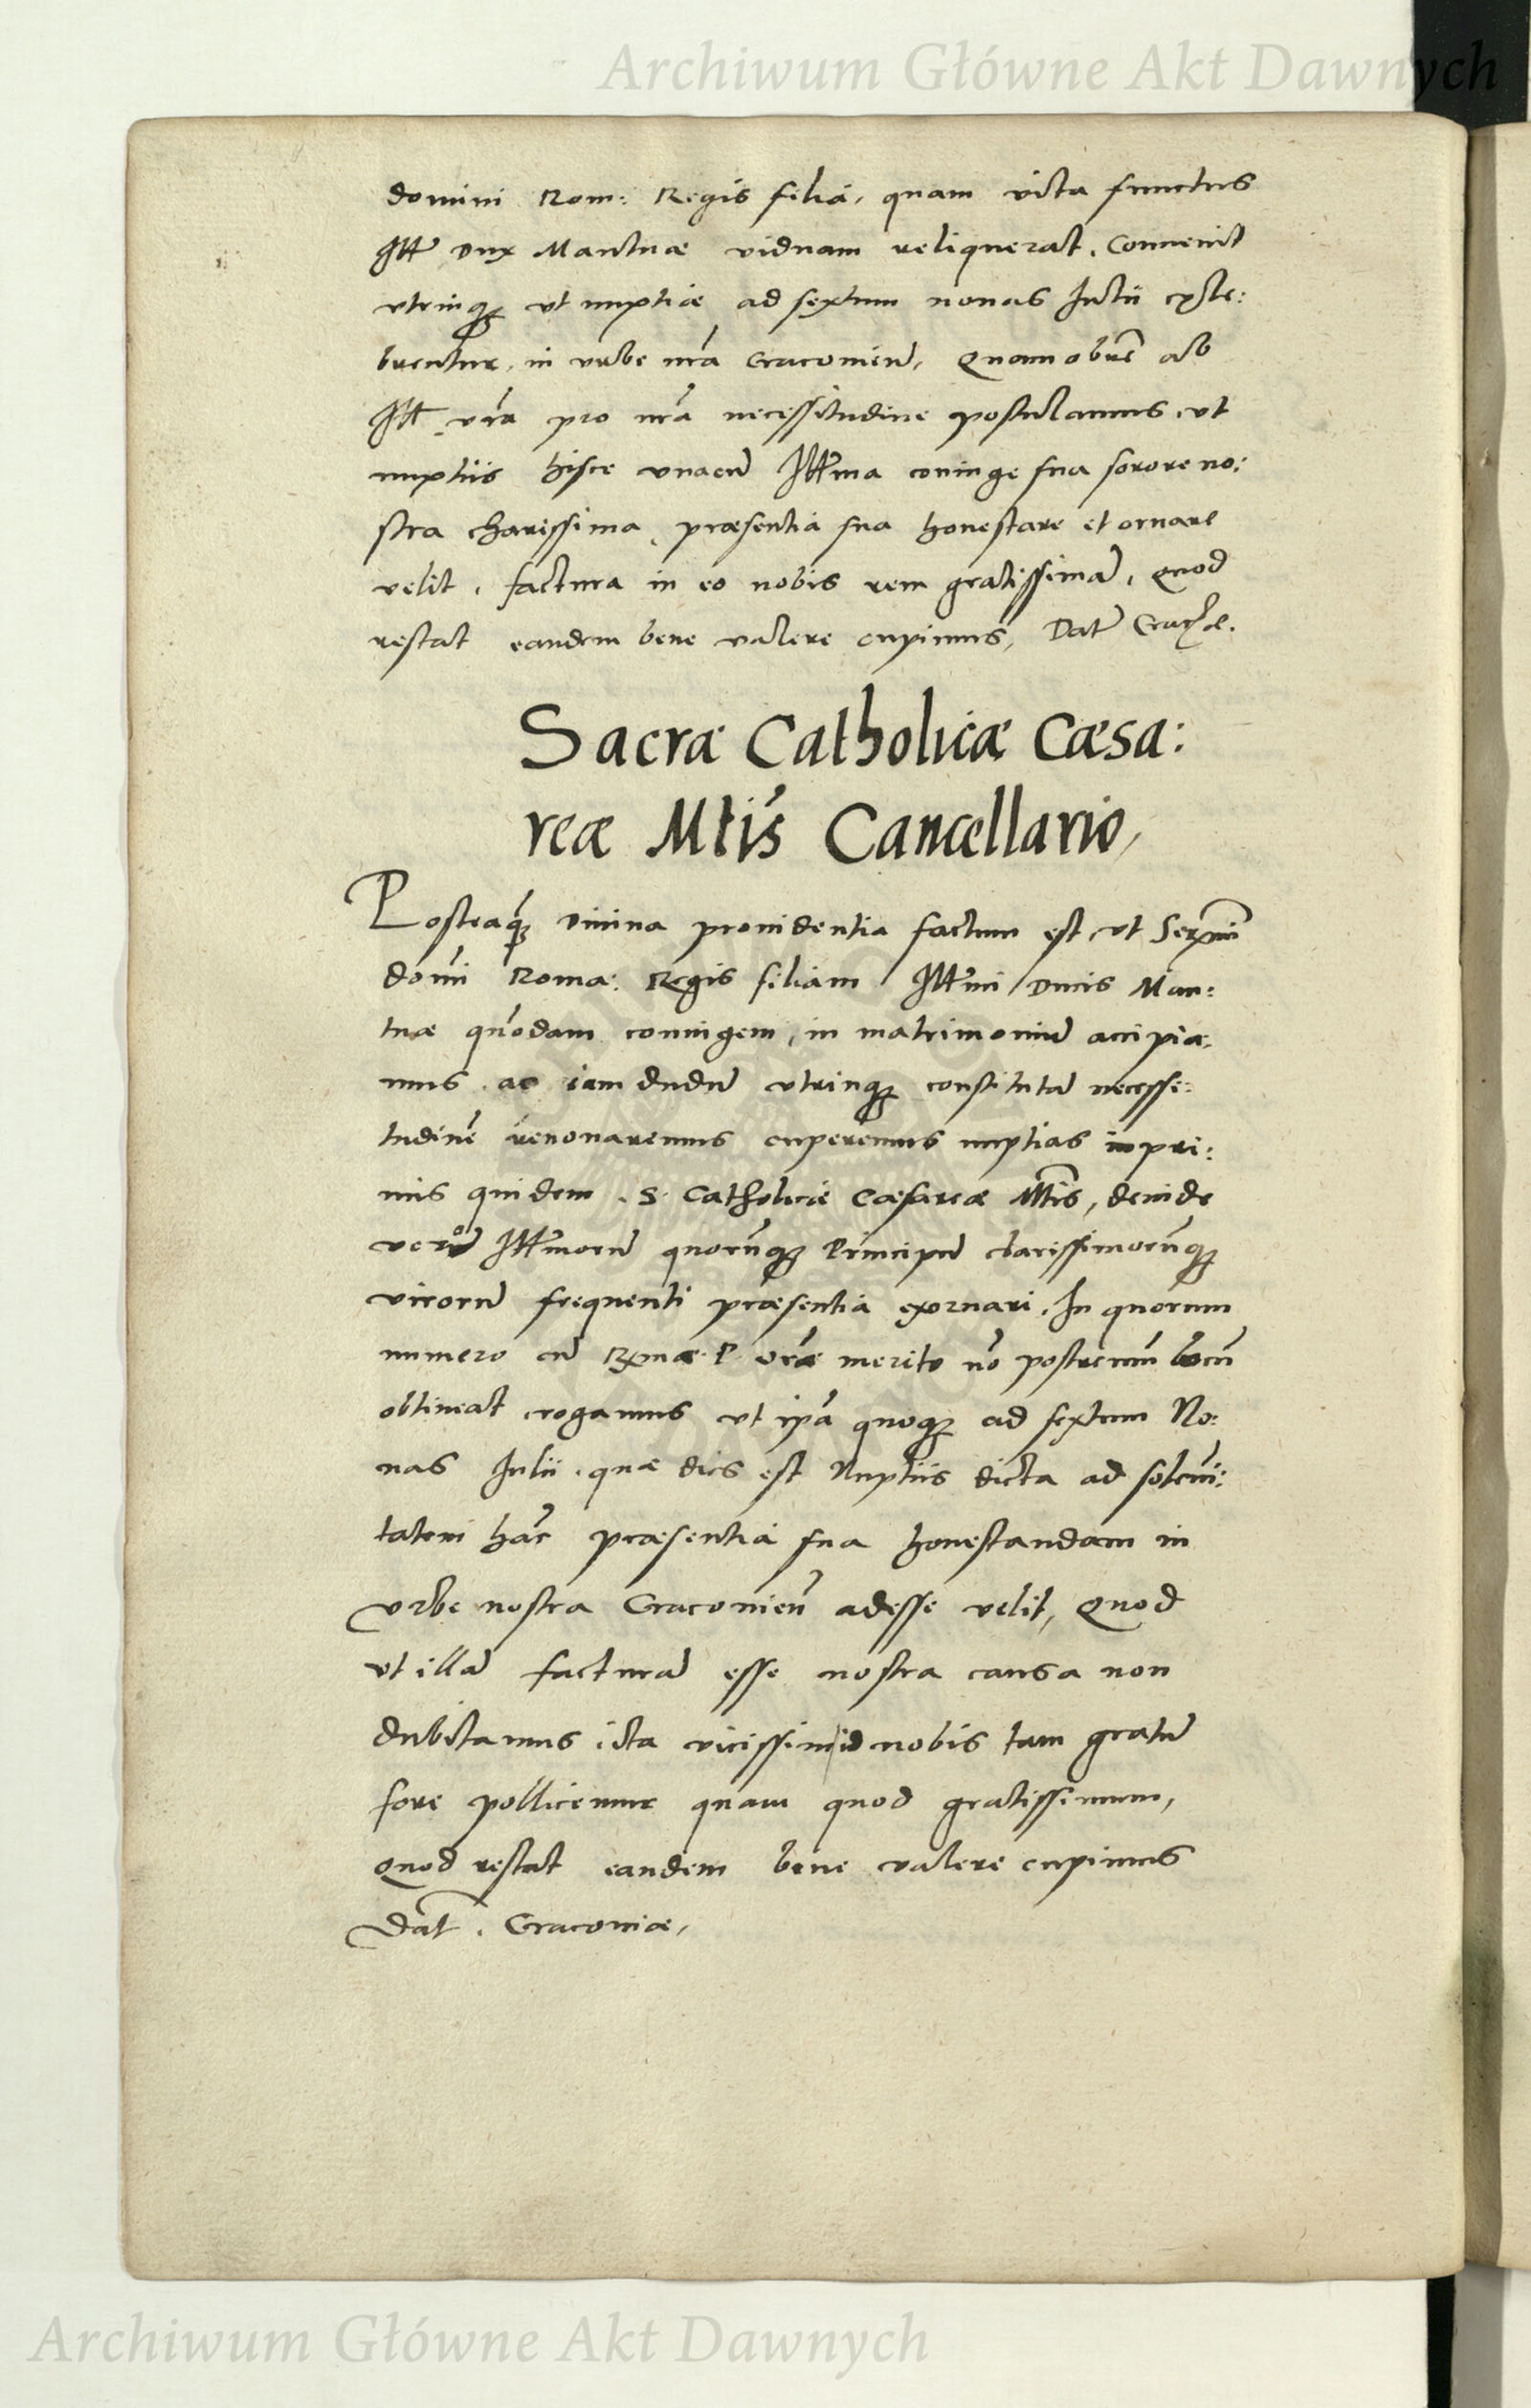 Archiwum Główne Akt Dawnych
domini Rom: Regis filia, quam vita functus
Ill̄ Dux Mantuæ viduam reliquerat. Convenit
vtrinq₃ vt nuptiæ ad sextum nonas Julii cęle:
brentur, in vrbe nr̄a Cracovien̄, Quamobrē ab
Ill̄ vr̄a pro nr̄a necessitudine postulamus, vt
nuptiis hisce vnacū Ill̄ma coniuge sua sorore no:
stra charissima, præsentia sua honestare et ornare
velit, factura in eo nobis rem gratissimā, Quod
restat eandem bene valere cupimus, Dat̄
Sacræ Catholicæ Cæsa:
reæ Mtis̄ Cancellario,
Posteaq̄₃ Divina providentia factum est, vt
domī Roma: Regis filiam Ill̄mi Ducis Man:
tuæ quōdam coniugem, in matrimoniū accipia,
mus, ac iam dudū vtrinq₃ constitutā necesse:
tudinē renovaremus cuperemus nuptias inpri:
mis quidem S. Catholicæ Cæsareæ Mtis̄, deinde
vero Ill̄morū quorūq₃ Principū clarissimorūq₃
virorū frequenti præsentia exornari, In quorum
numero cū Rx̄mæ P. vr̄æ merito nō postremū locū
obtineat, rogamus vt ipā quoq₃ ad sextum No:
nas Julii, quæ dies est Nuptiis dicta ad solenni:
tatem hāc præsentia sua honestandam in
vrbe nostra Cracovien̄ adesse velit, Quod
vt illā facturā esse nostra causa non
dubitamus, ita vicissim id nobis tam gratū
fore pollicemur quam quod gratissimum,
Quod restat eandem bene valere cupimus
Dat̄. Cracoviæ,
Archiwum Główne Akt Dawnych